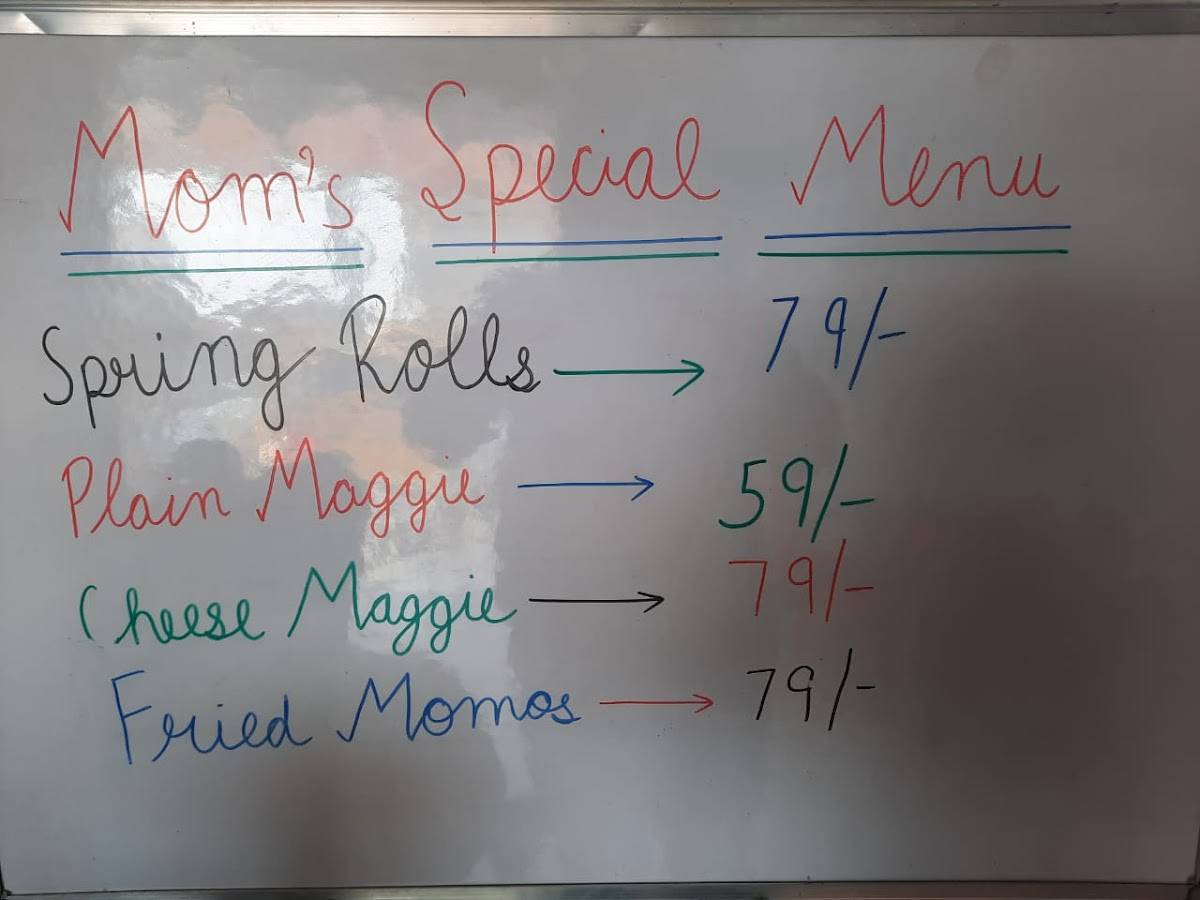 Mom's Special Menu
Spring Rolls → 79/-
Plain Maggie → 59/-
Cheese Maggie → 79/-
Fried Momos → 79/-